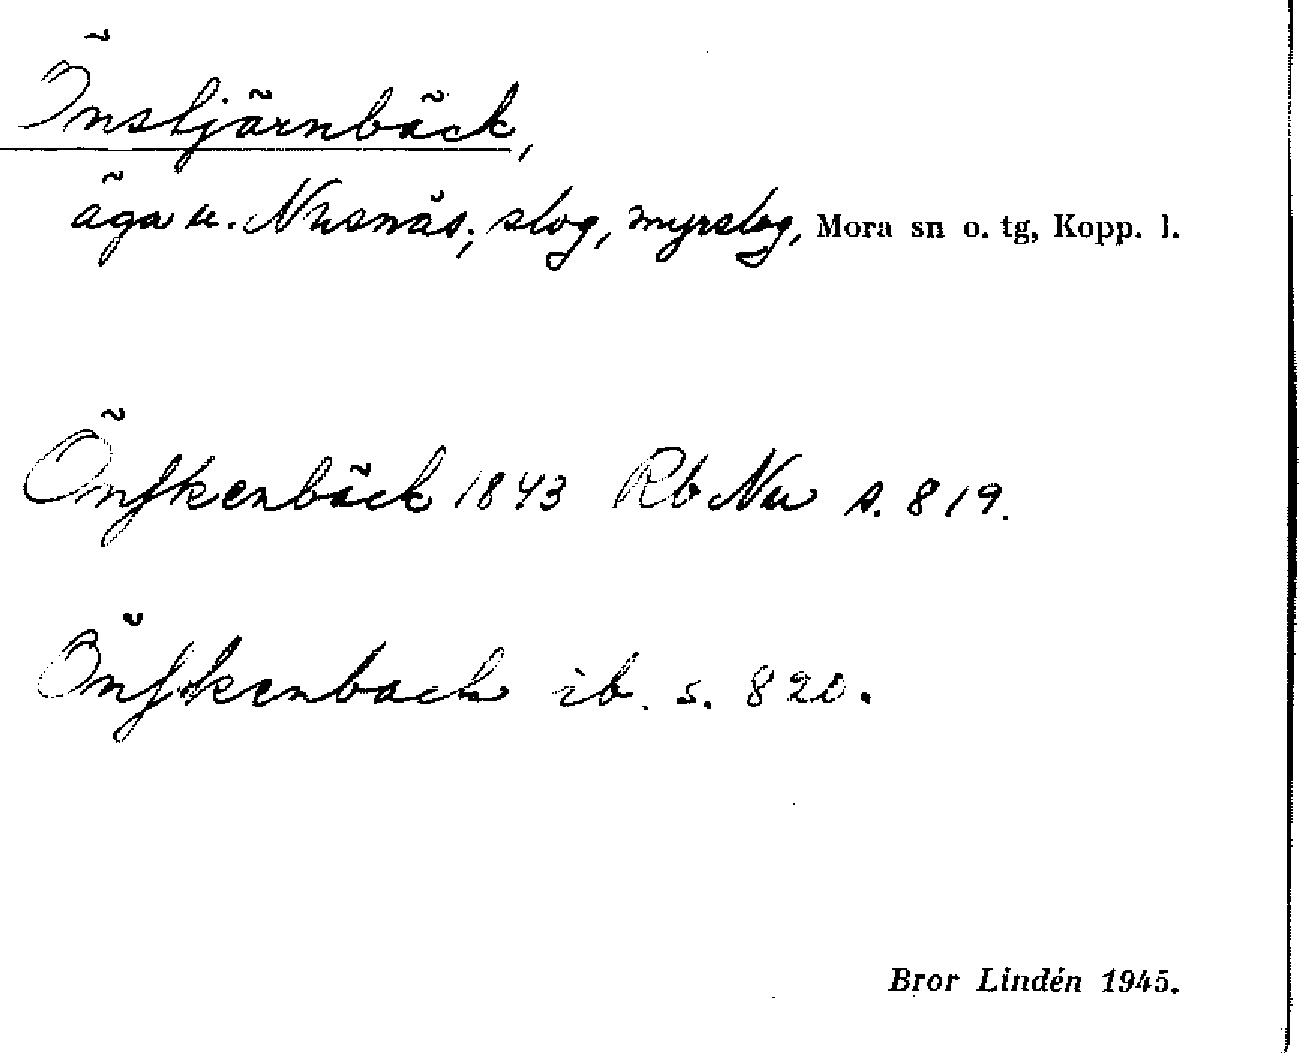 Önstjärnbäck,
äga u. Nusnäs; slog, myrslog, Mora sn o. tg, Kopp. l.
Önskenbäck 1843 Rb Nu s. 819.
Önskenback ib. s. 820.
Bror Lindén 1945.